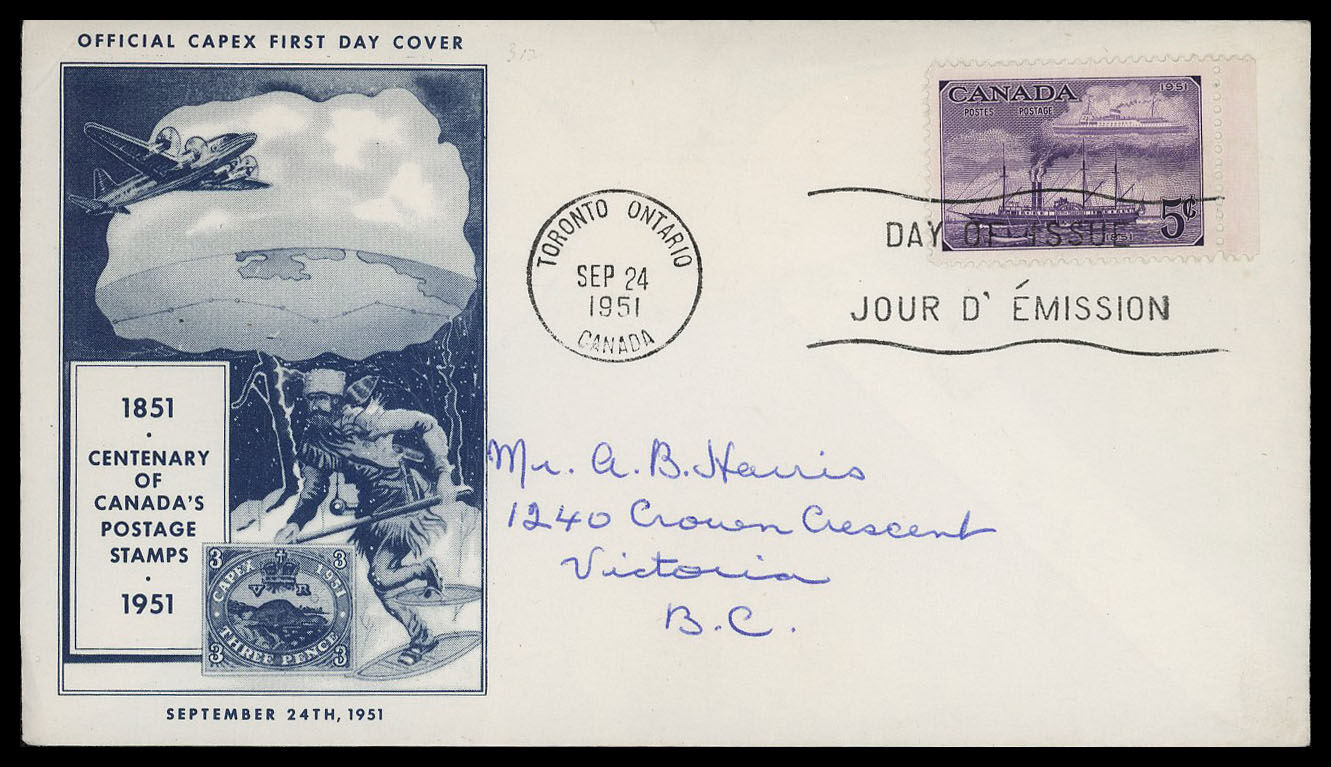 OFFICIAL CAPEX FIRST DAY COVER
312
CANADA
1951
POSTES POSTAGE
5¢
1951
TORONTO ONTARIO
SEP 24
1951
CANADA
DAY OF ISSUE
JOUR D' ÉMISSION
1851
·
CENTENARY
OF
CANADA'S
POSTAGE
STAMPS
·
1951
3 3
CAPEX 1951
V R
THREE PENCE
3 3
Mr. A. B. Harris
1240 Crowen Crescent
Victoria
B.C.
SEPTEMBER 24TH, 1951